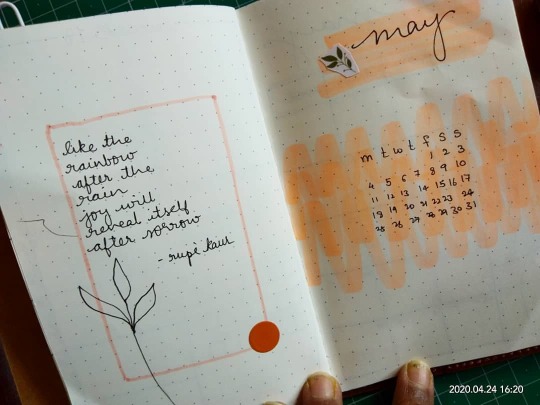 like the
rainbow
after the
rain
joy will
reveal itself
after sorrow
- rupi kaur
may
m t w t f s s
1 2 3
4 5 6 7 8 9 10
11 12 13 14 15 16 17
18 19 20 21 22 23 24
25 26 27 28 29 30 31
2020.04.24 16:20